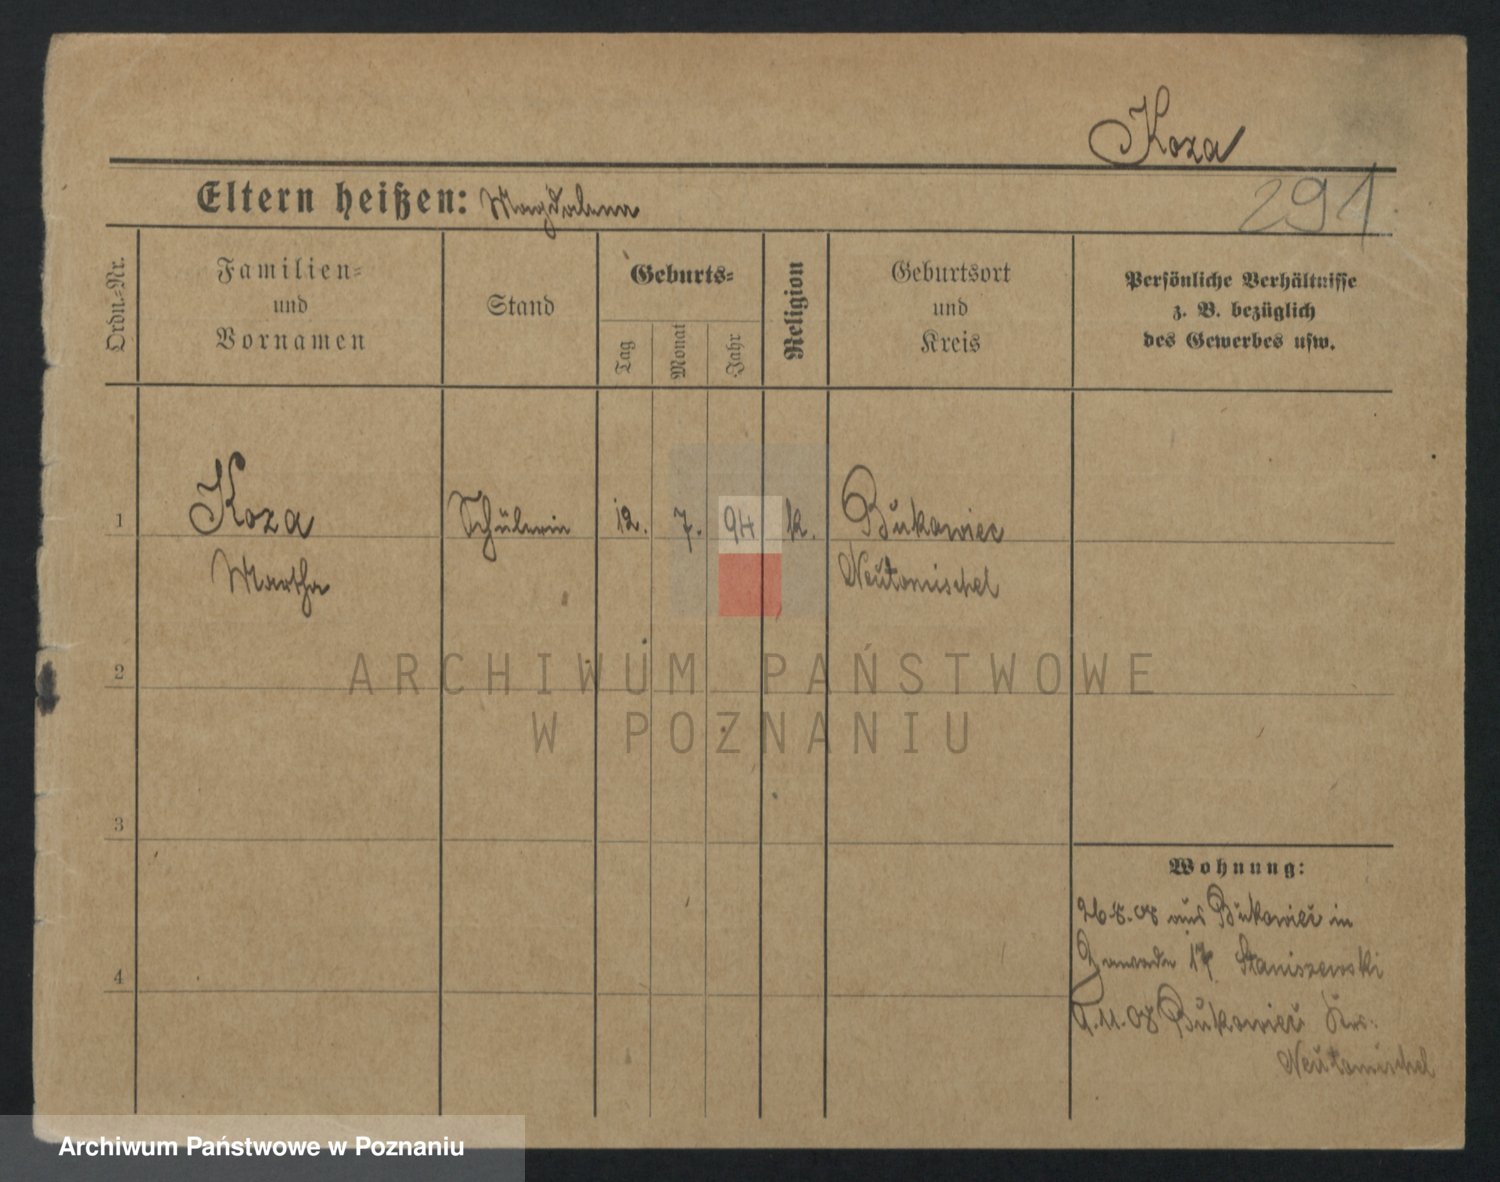 Koza
291
Eltern heißen: Magdalena
Ordn.-Nr.
Familien-
und
Vornamen
Stand
Geburts-
Tag
Monat
Jahr
Religion
Geburtsort
und
Kreis
Persönliche Verhältnisse
z. B. bezüglich
des Gewerbes usw.
1 Koza Schülerin 12. 7. 94 k. Bukowiec
Martha Neutomischel
2
ARCHIWUM PAŃSTWOWE
W POZNANIU
3
Wohnung:
26.8.08 aus Bukowiec in
Zawade 17 Staniszewski
4
9.11.08 Bukowiec Krs.
Neutomischel
Archiwum Państwowe w Poznaniu